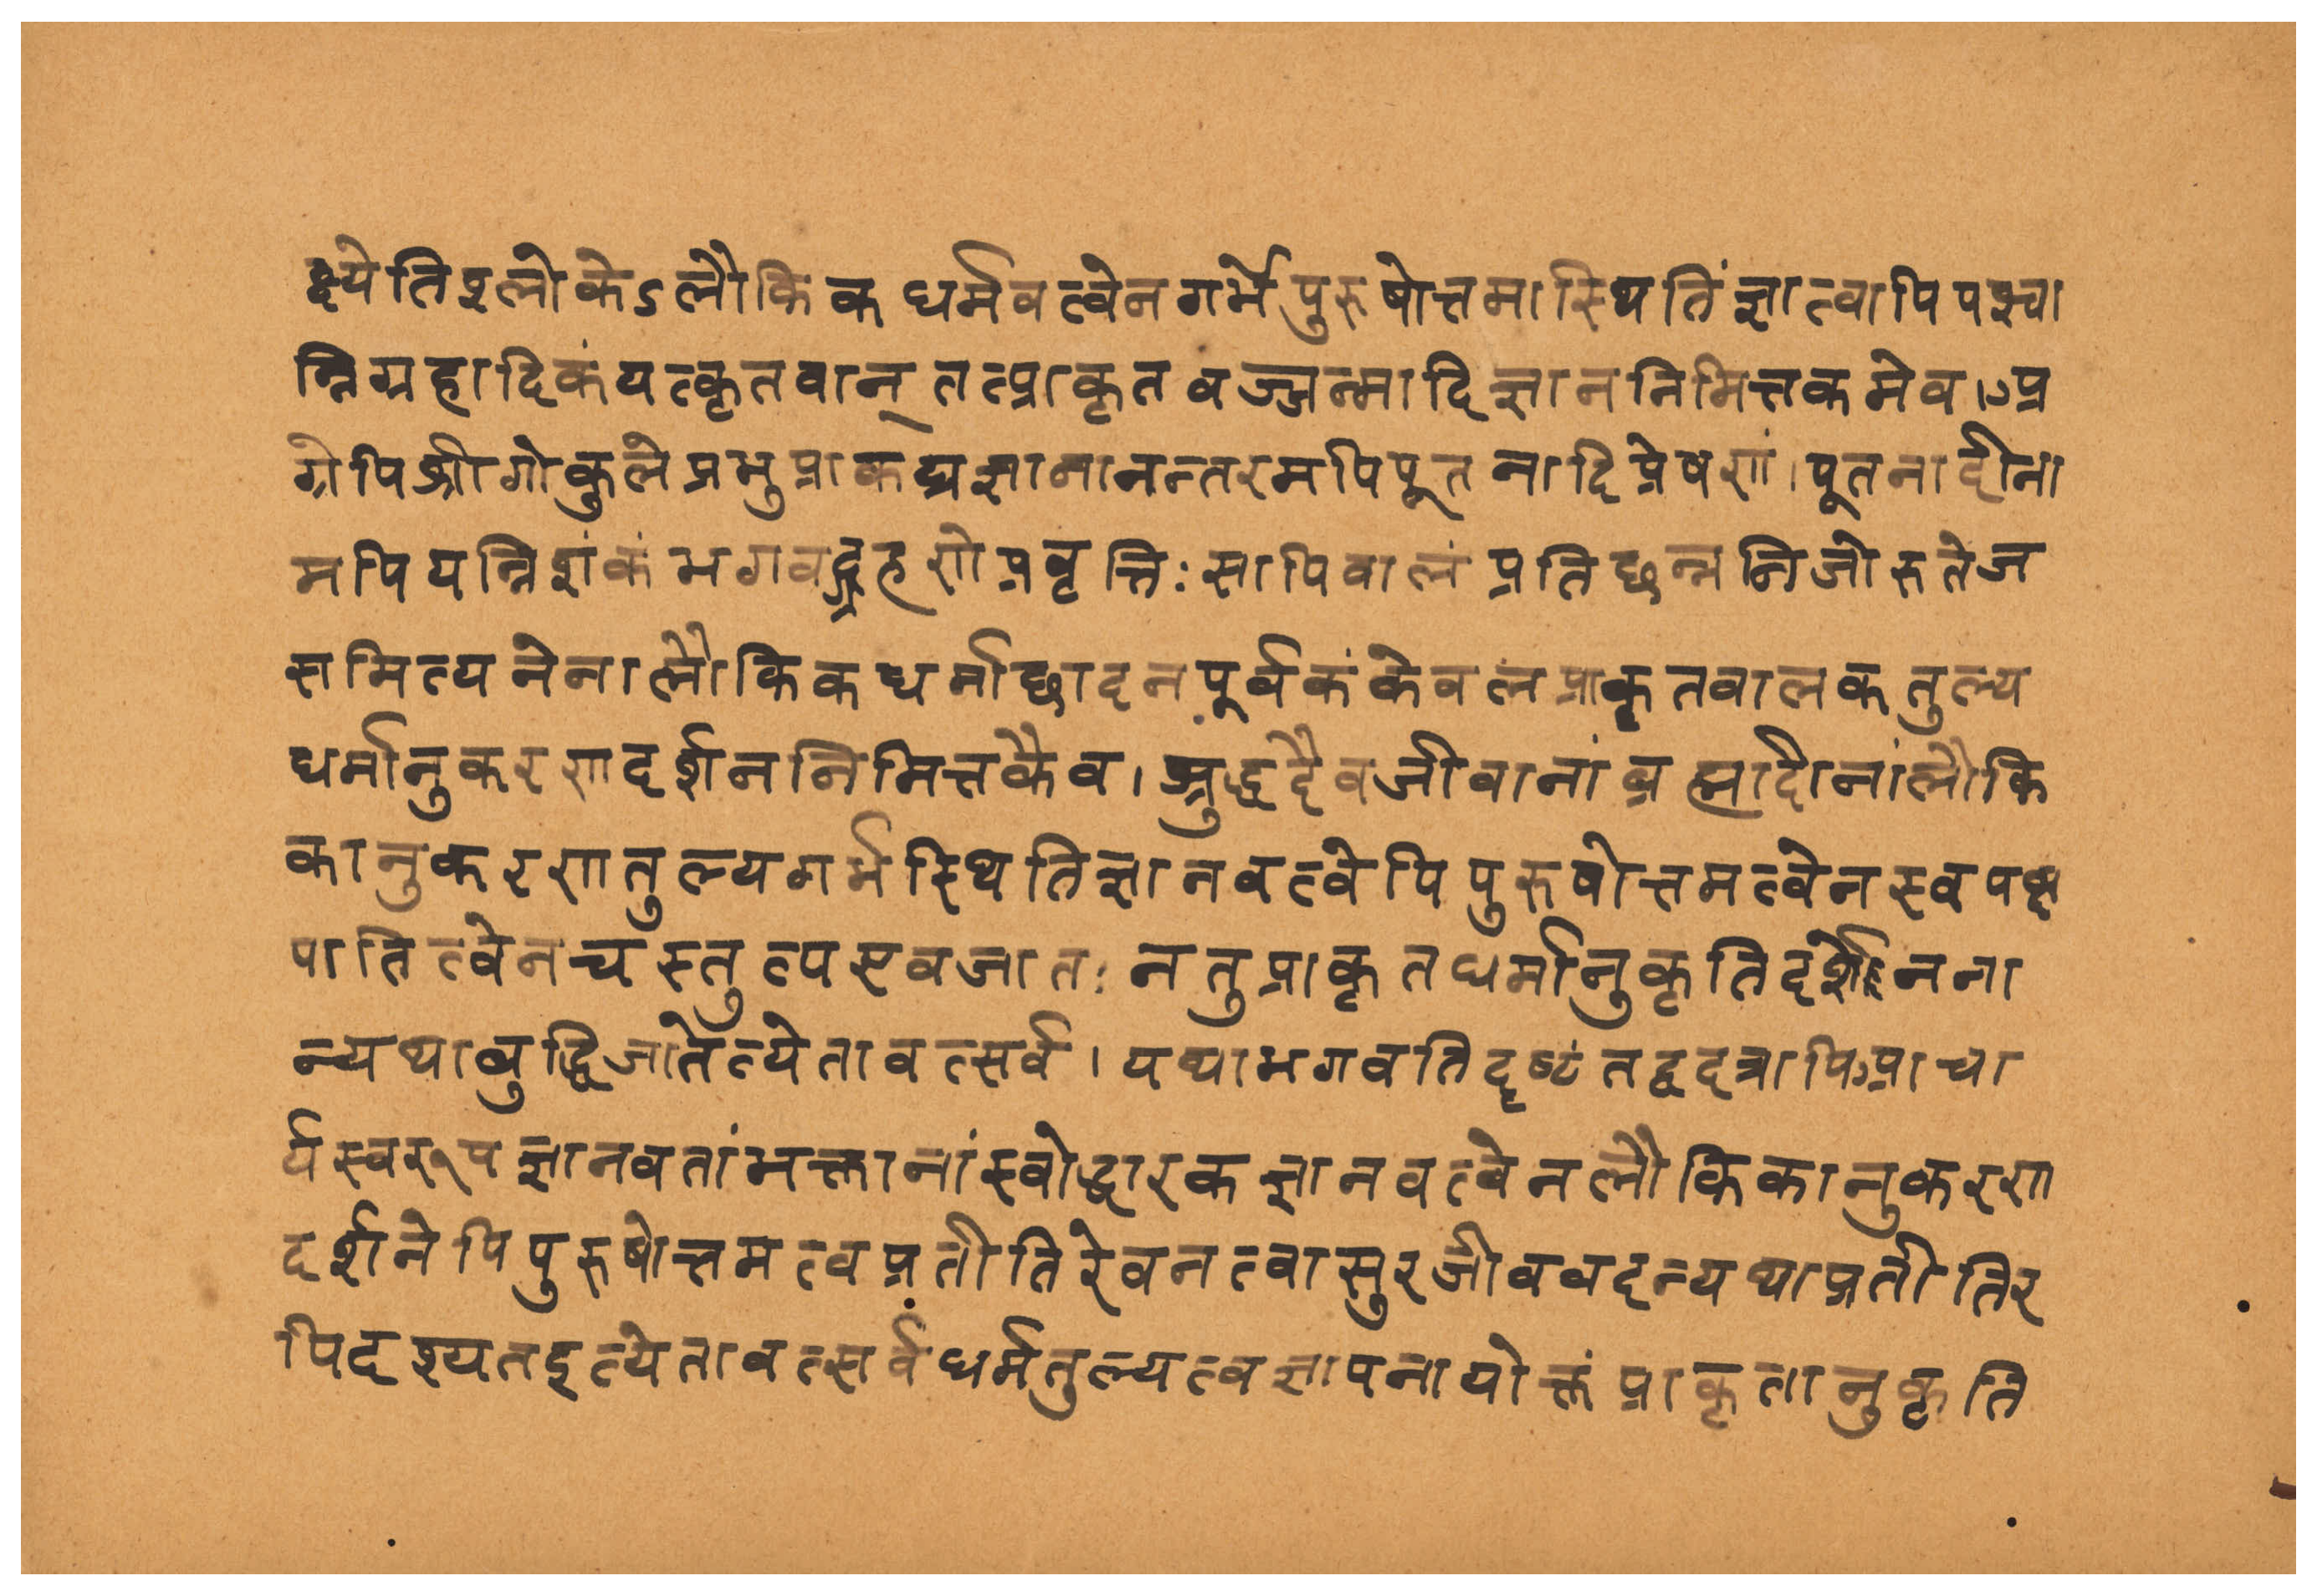 क्ष्येतिश्लोकेऽलौकिकधर्मवत्वेनगर्भेपुरुषोत्तमास्थितिंज्ञात्वापिपश्चा
न्निग्रहादिकंयत्कृतवान् तत्प्राकृतवज्जन्मादिज्ञाननिमित्तकमेव।अ
ग्रेपिश्रीगोकुलेप्रभुप्राकट्यज्ञानानन्तरमपिपूतनादिप्रेषणं।पूतनादीना
मपियन्निशंकंभगवद्ग्रहणेप्रवृत्तिः सापिवालंप्रतिछन्ननिजोरुतेज
समित्यनेनालौकिकधर्माछादनपूर्वकंकेवलंप्राकृतवालकतुल्य
धर्मानुकरणदर्शननिमित्तकैव। शुद्धदैवजीवानांब्रह्मादीनांलौकि
कानुकरणतुल्यगर्भस्थितिज्ञानवत्वेपिपुरुषोत्तमत्वेनस्वपक्ष
पातित्वेनचस्तुत्पएवजातः नतुप्राकृतधर्मानुकृतिदर्शनेनना
न्यथावुद्धिजातेत्येतावत्सर्वं। यथाभगवतिदृष्टंतद्वदत्रापिआचा
र्यस्वरूपज्ञानवतांभक्तानांस्वोद्धारकज्ञानवत्वेनलौकिकानुकरण
दर्शनेपिपुरुषोत्तमत्वप्रतीतिरेवनत्वासुरजीववदन्यथाप्रतीतिर
पिदृश्यतइत्येतावत्सर्वंधर्मतुल्यत्वज्ञापनायोक्तंप्राकृतानुकृति